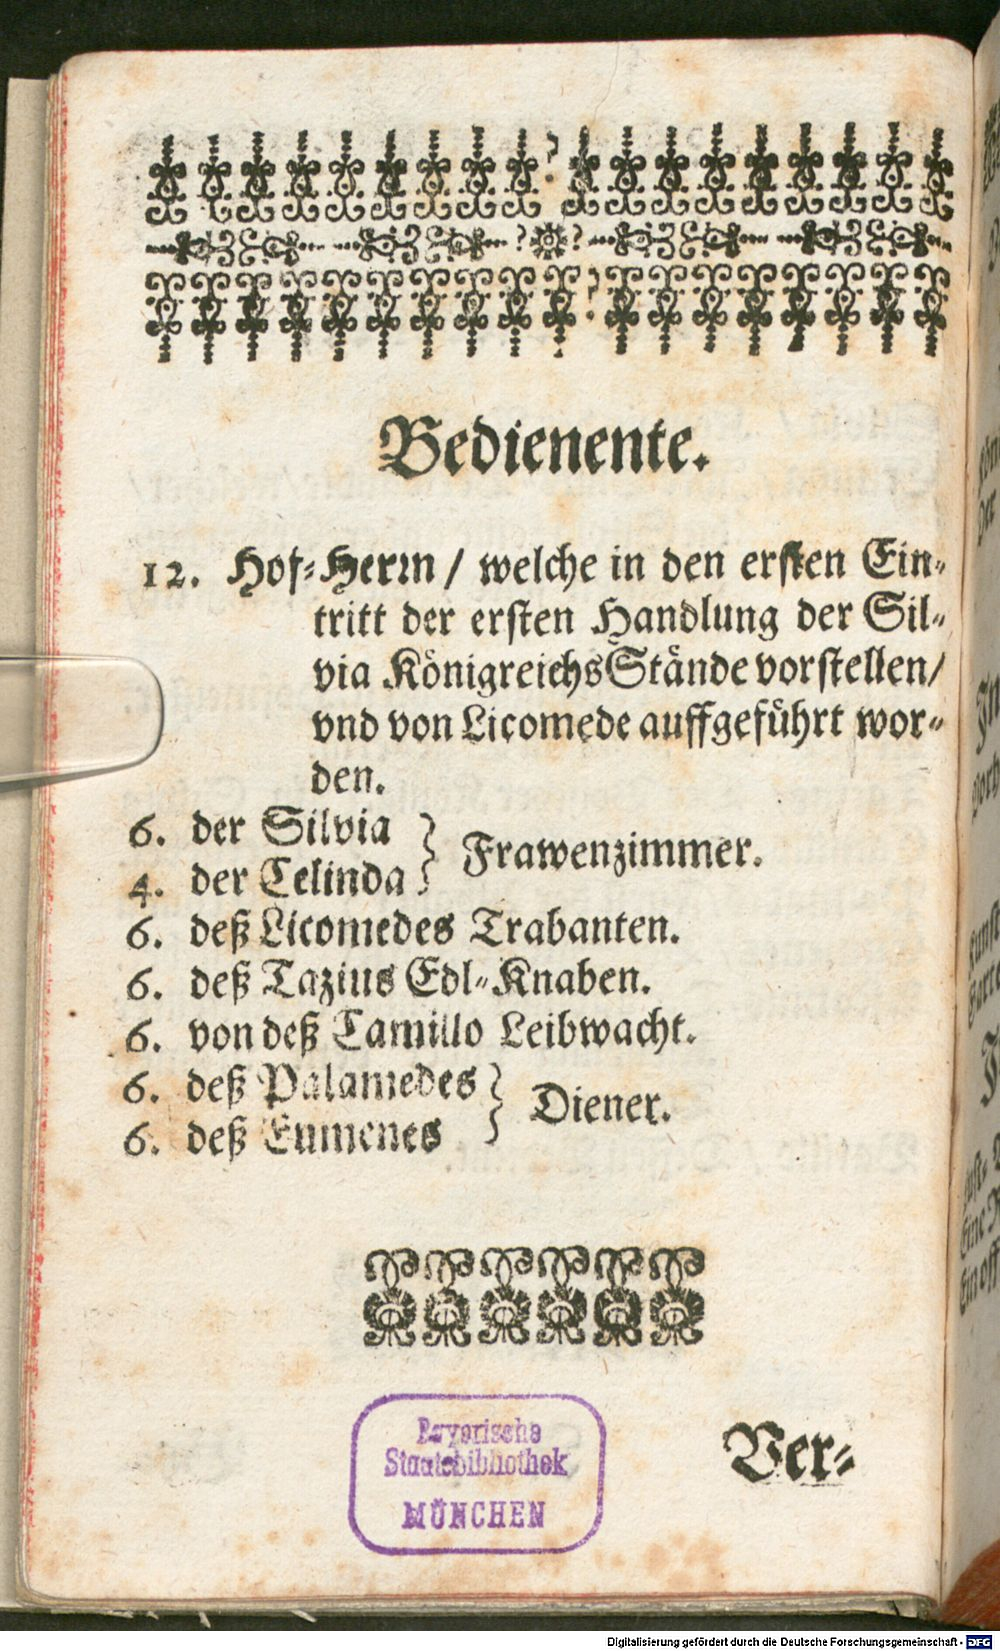 Bedienente.
12. Hof-Herrn / welche in den ersten Ein-
tritt der ersten Handlung der Sil-
via Königreichs Stände vorstellen/
vnd von Licomede auffgeführt wor-
den.
6. der Silvia } Frawenzimmer.
4. der Celinda
6. deß Licomedes Trabanten.
6. deß Tazius Edl-Knaben.
6. von deß Camillo Leibwacht.
6. deß Palamedes } Diener.
6. deß Eumenes
Bayerische
Staatsbibliothek
MÜNCHEN
Ver-
Digitalisierung gefördert durch die Deutsche Forschungsgemeinschaft - DFG